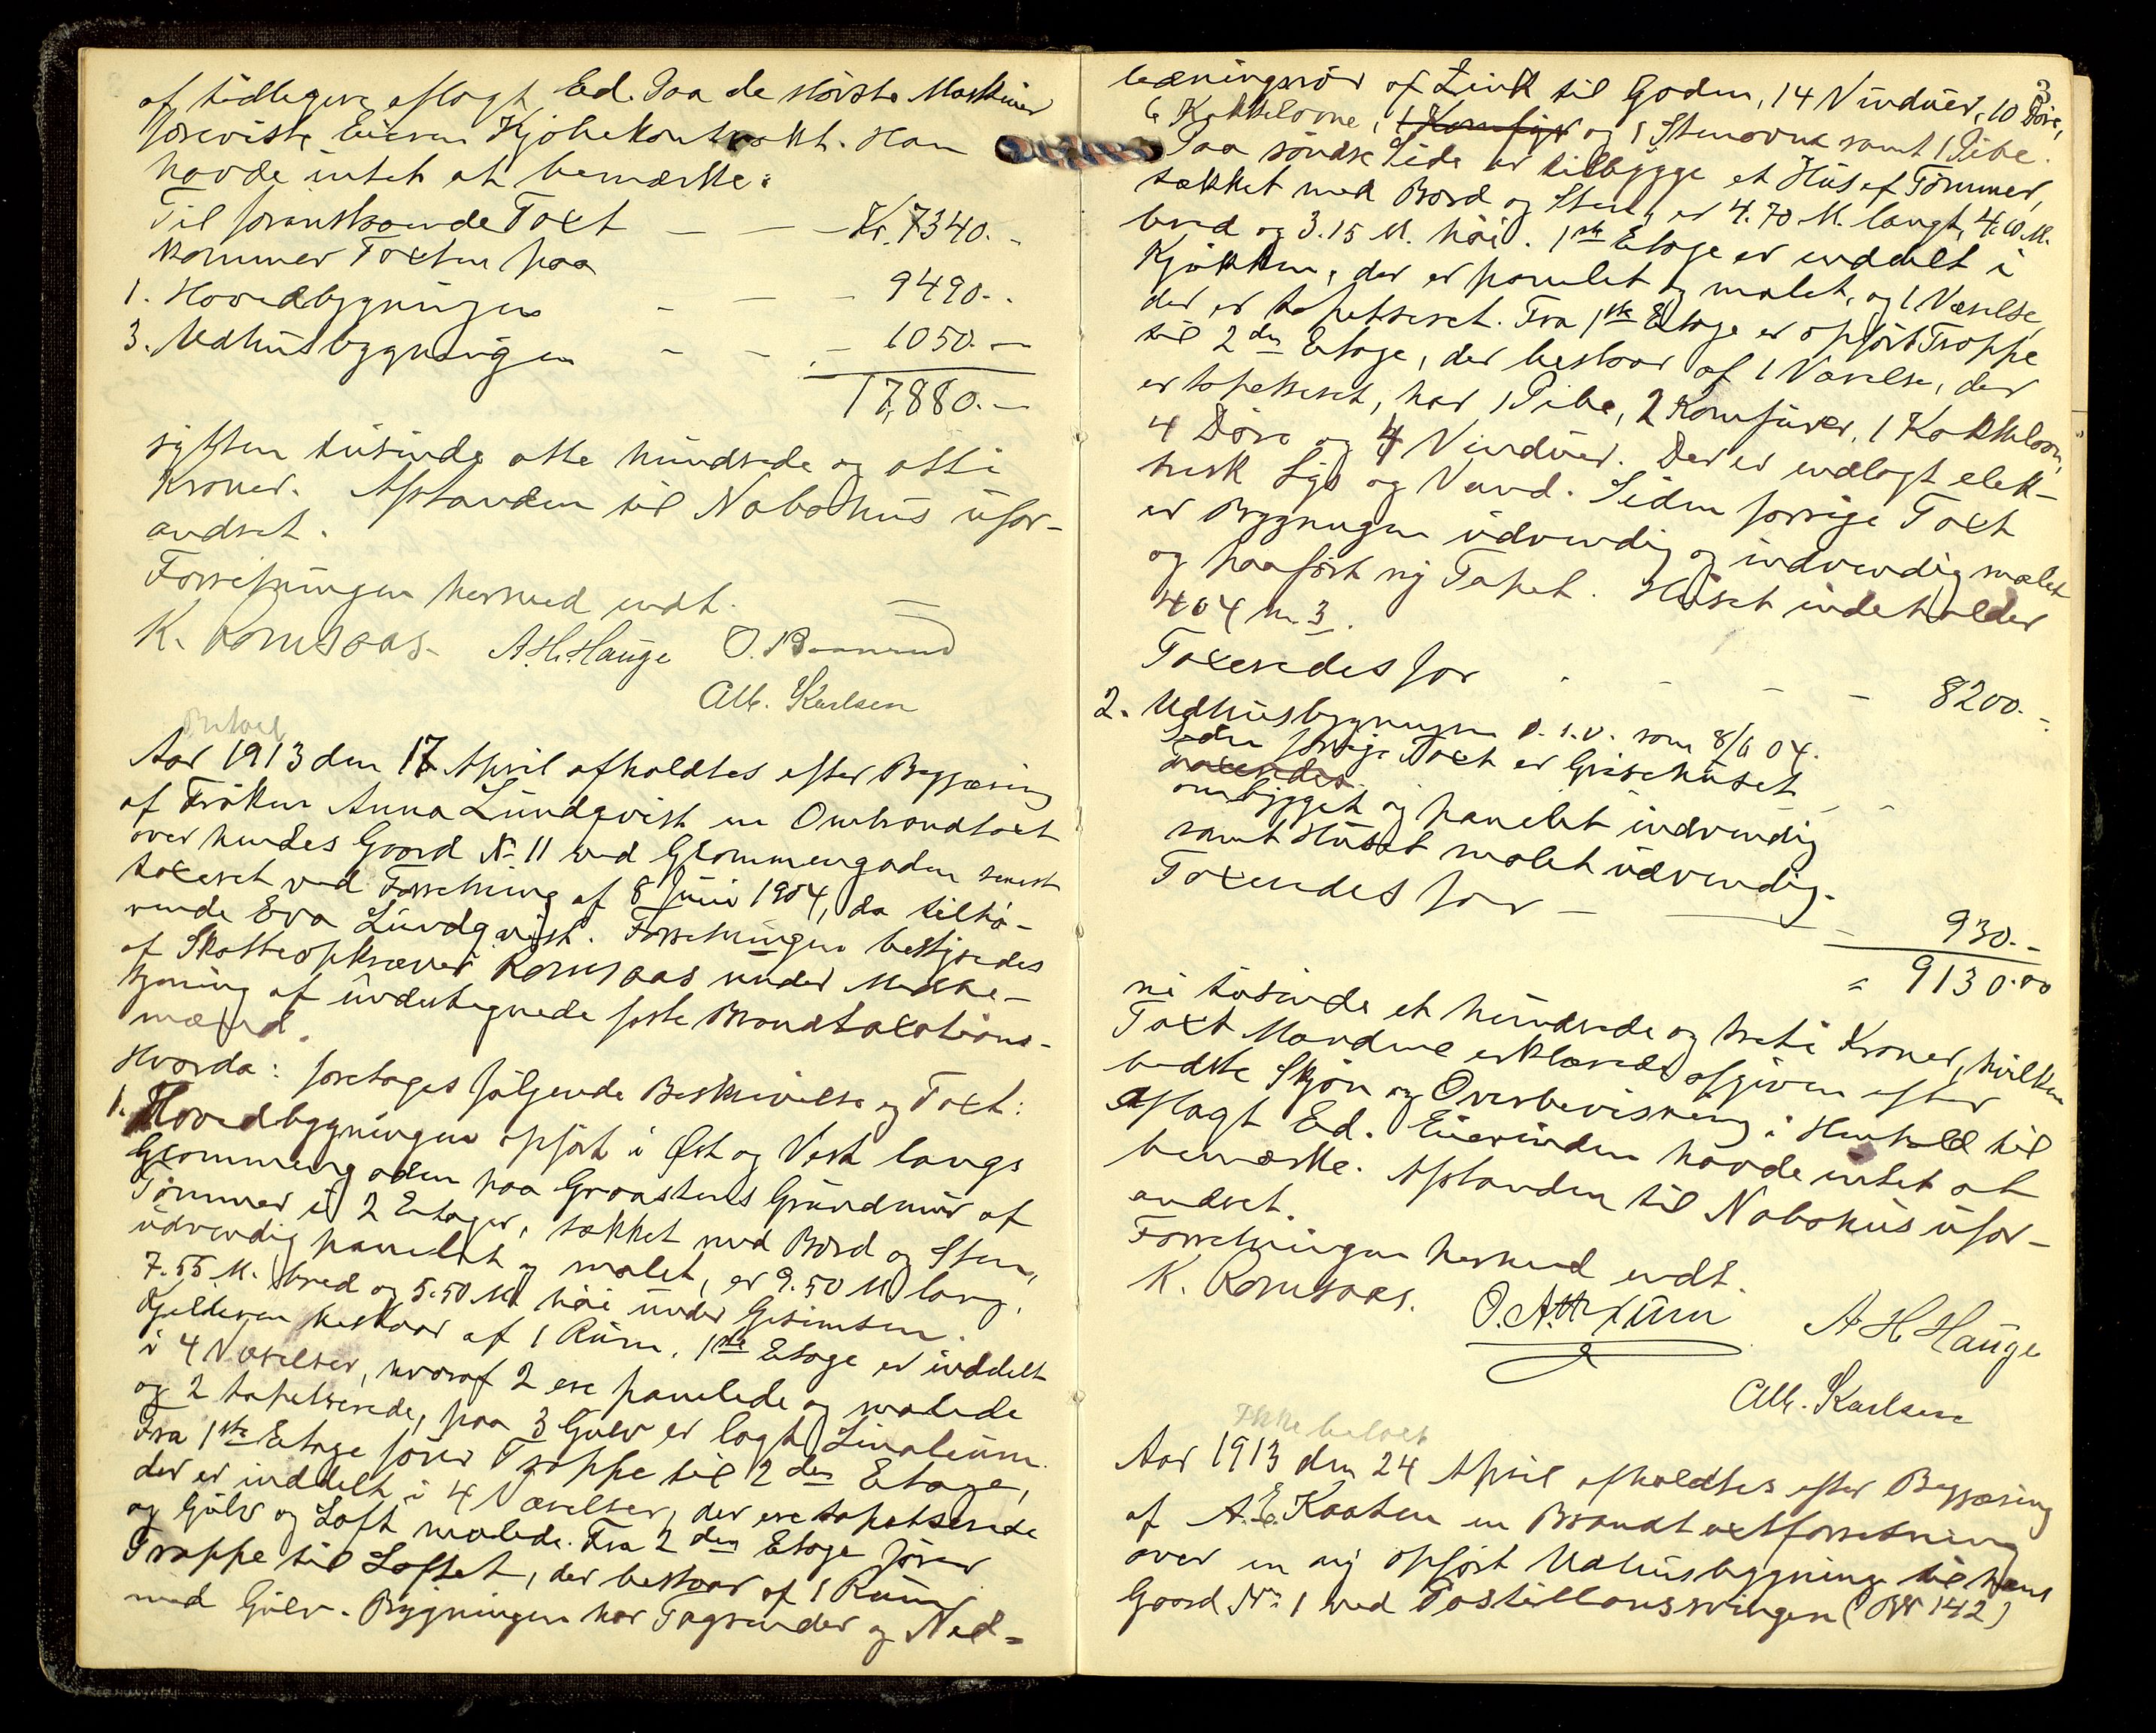 af tidligere aflagt Ed. Paa de største Maskiner
foreviste Eieren Kjøbekontrakt. Han
havde intet at bemærke.
Til foranstaaende Taxt — — — Kr. 7340. -
kommer Taxten paa
1. Hovedbygningen - — - 9490. -
3. Udhusbygningen - - - 1050. —
17,880. —
sytten tusinde otte hundrede og otti
Kroner. Afstanden til Nabohus ufor-
andret.
Forretningen hermed endt.
K. Romsaas. A. H. Hauge O. Baanrud
Alb. Karlsen
Betael
Aar 1913 den 17 April afholdtes efter Begjæring
af Frøken Anna Lundqvist en Ombrandtaxt
over hendes Gaard No 11 ved Glommengaden senest
taxeret ved Forretning af 8 Juni 1904, da tilhø-
rende Eva Lundqvist. Forretningen bestyredes
af Skatteopkræver Romsaas under Medbe-
tjening af undertegnede faste Brandtaxations-
mænd.
Hvorda: foretages følgende Beskrivelse og Taxt:
1. Hovedbygningen opført i Øst og Vest langs
Glommengaden paa Graastens Grundmur af
Tømmer i 2 Etager, tækket med Bord og Sten,
udvendig panelet og malet, er 9.50 M lang,
7.55 M. bred og 5.50 M høi under Gesimsen.
Kjelderen bestaar af 1 Rum. 1ste Etage er inddelt
i 4 Værelser, hvoraf 2 ere panelede og malede
og 2 tapetserede, paa 3 Gulv er lagt Linoleum.
Fra 1ste Etage fører Trappe til 2den Etage,
der er inddelt i 4 Værelser, der ere tapetserede
og Gulv og Loft malede. Fra 2den Etage fører
Trappe til Loftet, der bestaar af 1 Rum
med Gulv. Bygningen har Tagrender og Ned-
3
ledningsrør af Zink til Gaden, 14 Vinduer, 10 Døre,
6 Kakkelovne, 1 Komfyr og 1 Stenovn samt 1 Pibe.
Paa søndre Side er tilbygge et Hus af Tømmer,
tækket med Bord og Sten, er 4.70 M. langt, 4.10 M.
bred og 3.15 M. høi. 1ste Etage er inddelt i
Kjøkken, der er panelet og malet, og 1 Værelse,
der er tapetseret. Fra 1ste Etage er opført Trappe
til 2den Etage, der bestaar af 1 Værelse, der
er tapetseret, har 1 Pibe, 2 Komfurer, 1 Kakkelovn,
4 Døre og 4 Vinduer. Der er indlagt elek-
trisk Lys og Vand. Siden forrige Taxt
er Bygningen udvendig og indvendig malet
og paaført ny Tapet. Huset indeholder
404 m.3.
Taxeredes for - - - - 8200. -
2. Udhusbygningen o. s. v. som 8/6 04.
Siden forrige Taxt er Grisehuset
taxeredes
ombygget og panelet indvendig
samt Huset malet udvendig.
Taxeredes for — — - 930. -
= 9130.00
ni tusinde et hundrede og treti Kroner, hvilken
Taxt Mændene erklærede afgiven efter
bedste Skjøn og Overbevisning i Henhold til
aflagt Ed. Eierinden havde intet at
bemærke. Afstanden til Nabohus ufor-
andret.
Forretningen hermed endt.
K. Romsaas. A H Hauge
Alb. Karlsen
Ikke betalt
Aar 1913 den 24 April afholdtes efter Begjæring
af A. E. Kaaten en Brandtaxtforretning
over en ny opført Udhusbygning til hans
Gaard No. 1 ved Postillionssvingen (142)